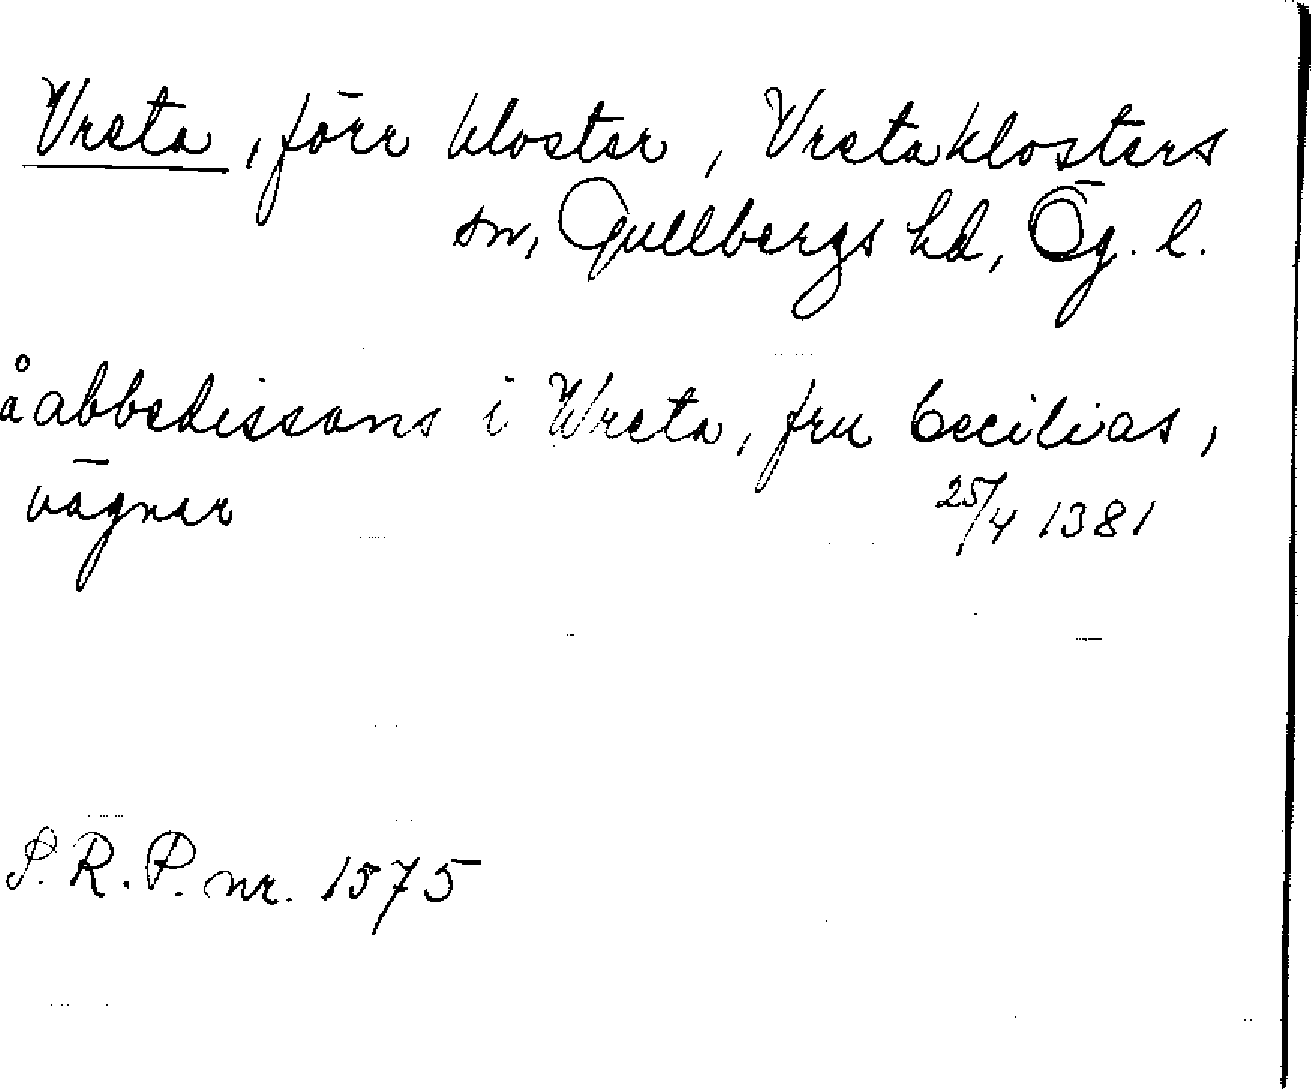 Vreta, förr kloster, Vreta klosters
sn, Gullbergs hd, Ög. l.
å abbedissans i Wreta, fru Cecilias,
vägnar 25/4 1381
S. R. P. nr. 1575